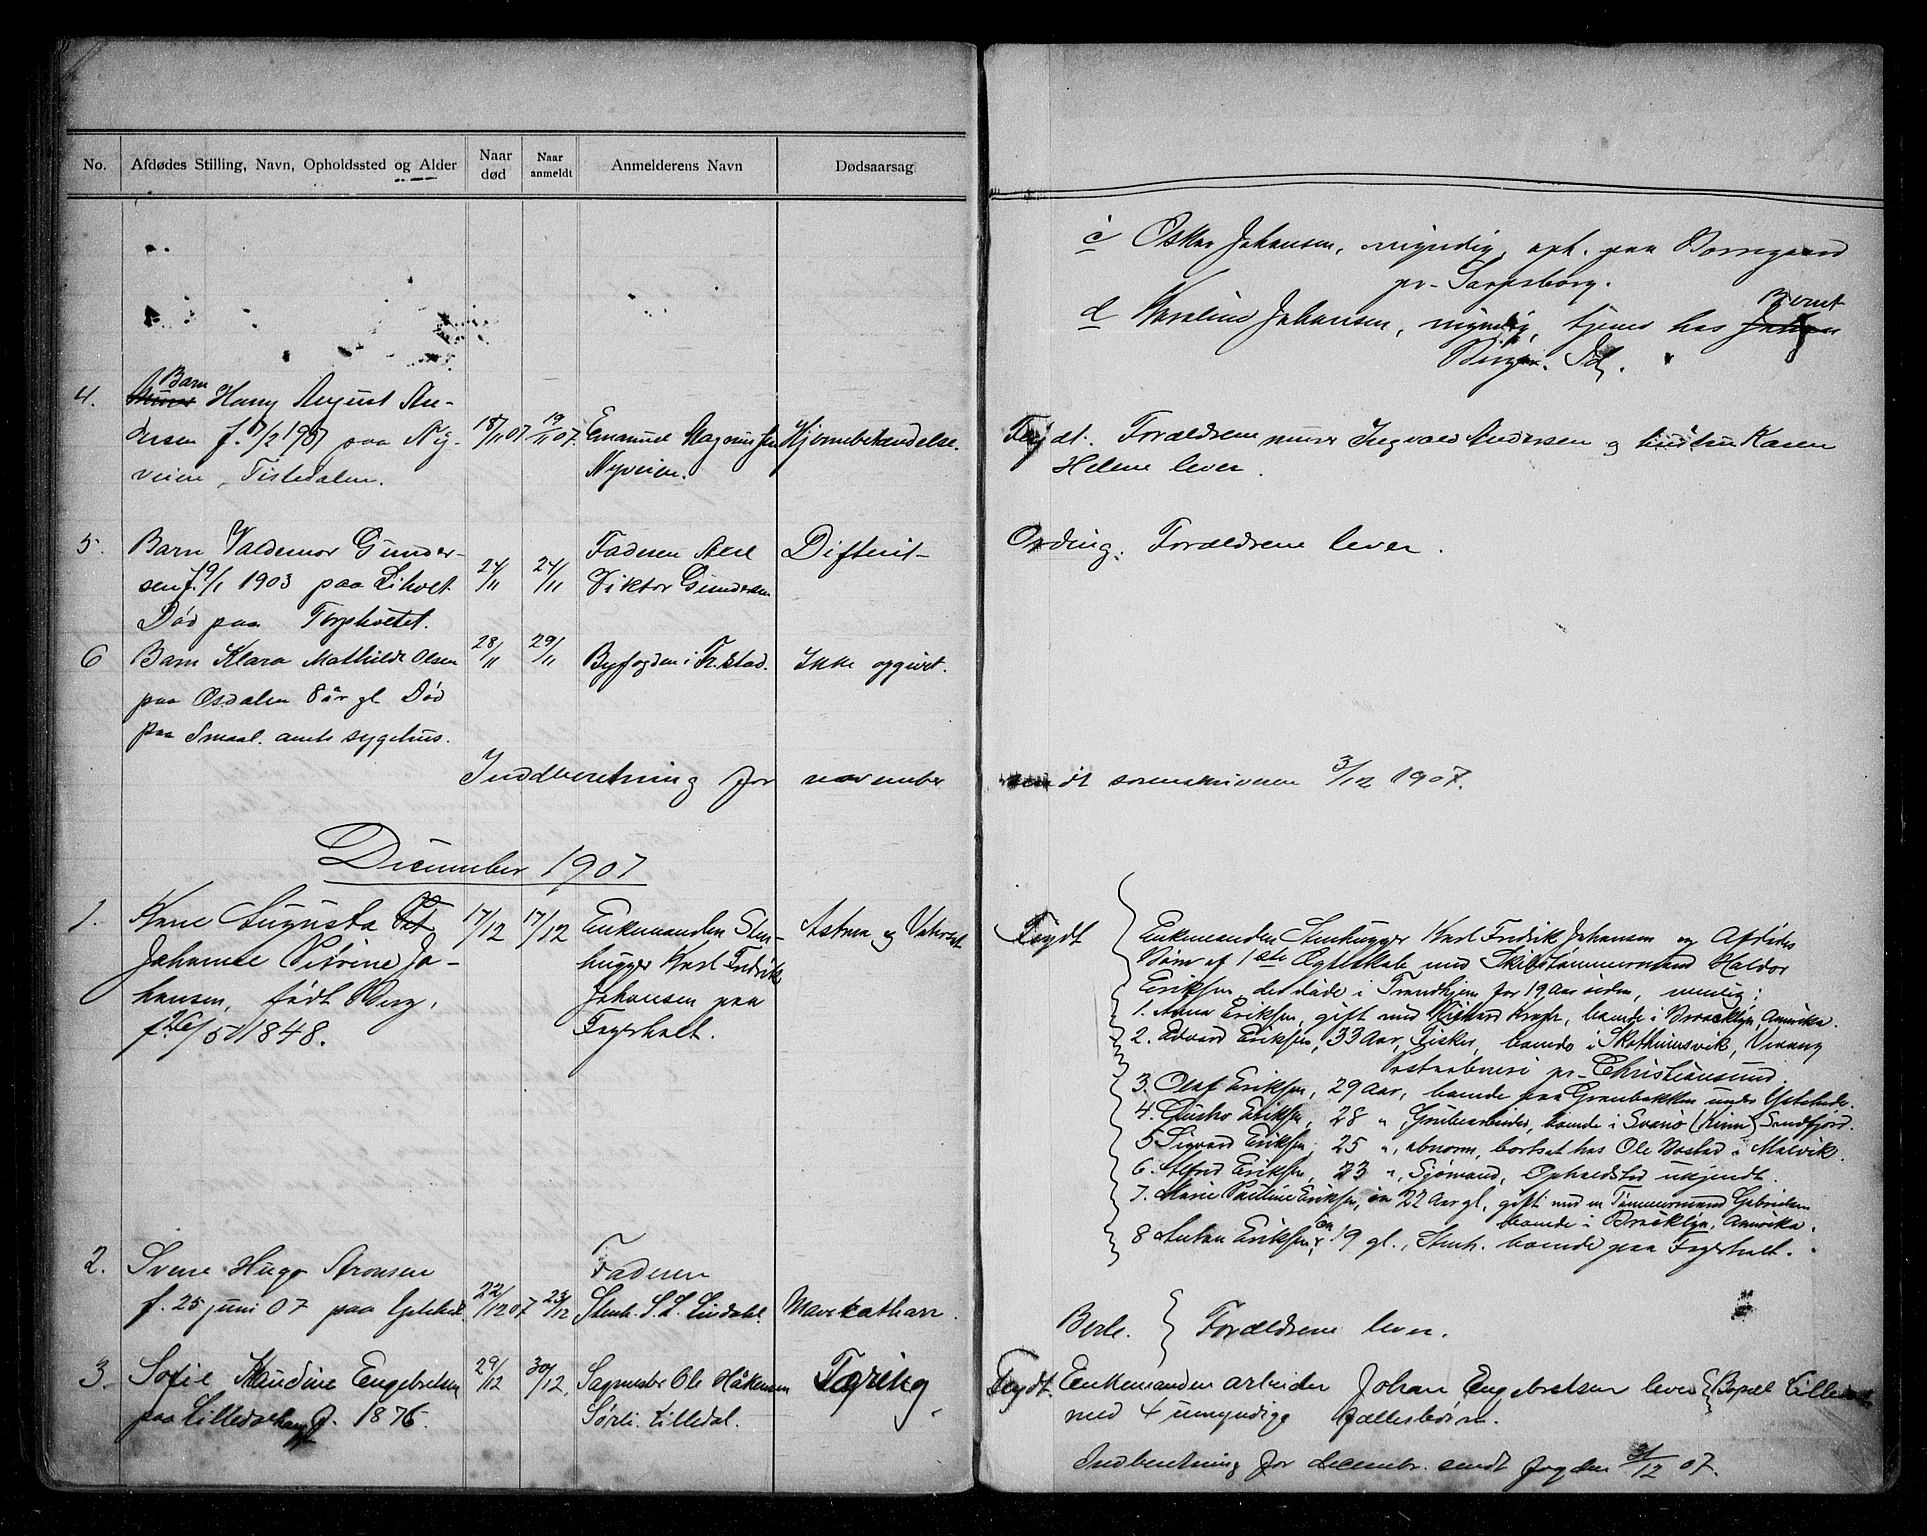 No.
Afdødes Stilling, Navn, Opholdssted og Alder
Naar død
Naar anmeldt
Anmelderens Navn
Dødsaarsag
4.
Barn
Harry August An-
dersen f. 7/2 1907 paa Ny-
veien, Tistedalen.
18/11 07
19/11 07.
Emanuel Magnussen
Nyveien.
Hjernebetændelse.
5.
Barn Valdemar Gunder-
sen f. 9/1 1903 paa Lihvet
Død paa Torpholtet.
24/11
24/11
Faderen Axel
Viktor Gundersen
Difterit
6
Barn Klara Mathilde Olsen
paa Osdalen 8 år gl Død
paa Smaal. amts sygehus.
28/11
29/11
Byfogden i Fr.stad.
Ikke opgivet.
Indberetning for november
December 1907
1.
Augusta
Johanne Petrine Jo-
hansen, født Berg,
f. 26/5 1848.
17/12
17/12
Enkemanden Sten-
hugger Karl Fredrik
Johansen paa
Fagerholt.
Astma og Vatersot
2.
Svene Hugo Aronsen
f. 25 juni 07 paa
22/12 07
23/12
Faderen
Stenh. S. L. Lindahl.
Mavekatharr.
3.
Sofie Engebretsen
paa Lilledalhaug f. 1876.
29/12
30/12.
Sagmester Ole Håkensen
Sørli. Lilledal.
Tæring,
c Oskar Johansen, myndig, oph. paa Borregaard
pr. Sarpsborg.
Bernt
d Karoline Johansen, myndig, tjener hos
Id.
Frydt. Forældrene murer Ingvald Andersen og hustru Karen
Helene lever.
Ording. Forældrene lever.
sendt sorenskriveren 3/12 1907.
Frydt
Enkemanden Stenhugger Karl Fredrik Johansen og Afdødes
Børn af 1ste Ægteskab med Skibstømmermand Haldor
Eriksen, der døde i Trondhjem for 19 Aar siden, nemlig:
1. Anna Eriksen, gift med Richard Krogh, boende i Brooklyn, Amerika.
2. Edvard Eriksen, 33 Aar, Fisker, boende i
Postaabneri pr. Christiansund.
3. Olaf Eriksen, 29 Aar, boende paa Granbakken under
4. Gustav Eriksen, 28 " Grubearbeider, boende i Svanø (Kinn) Sondfjord.
5 Sigvard Eriksen, 25 ", abnorm, bortsat hos Ole Bostad i Malvik.
6. Alfred Eriksen, 23 ", Sjømand, Opholdsted ukjendt.
7. Marie Pauline Eriksen, 22 Aar gl, gift med en Tømmermand
boende i Brooklyn, Amerika.
8 Anton Eriksen, 19 gl., Stenh. boende paa Fagerholt.
Berle. } Forældrene lever.
Frydt. Enkemanden arbeider Johan Engebretsen lever
med 4 umyndige fællesbørn.
Indberetning for decembr. sendt fogden 31/12 07.